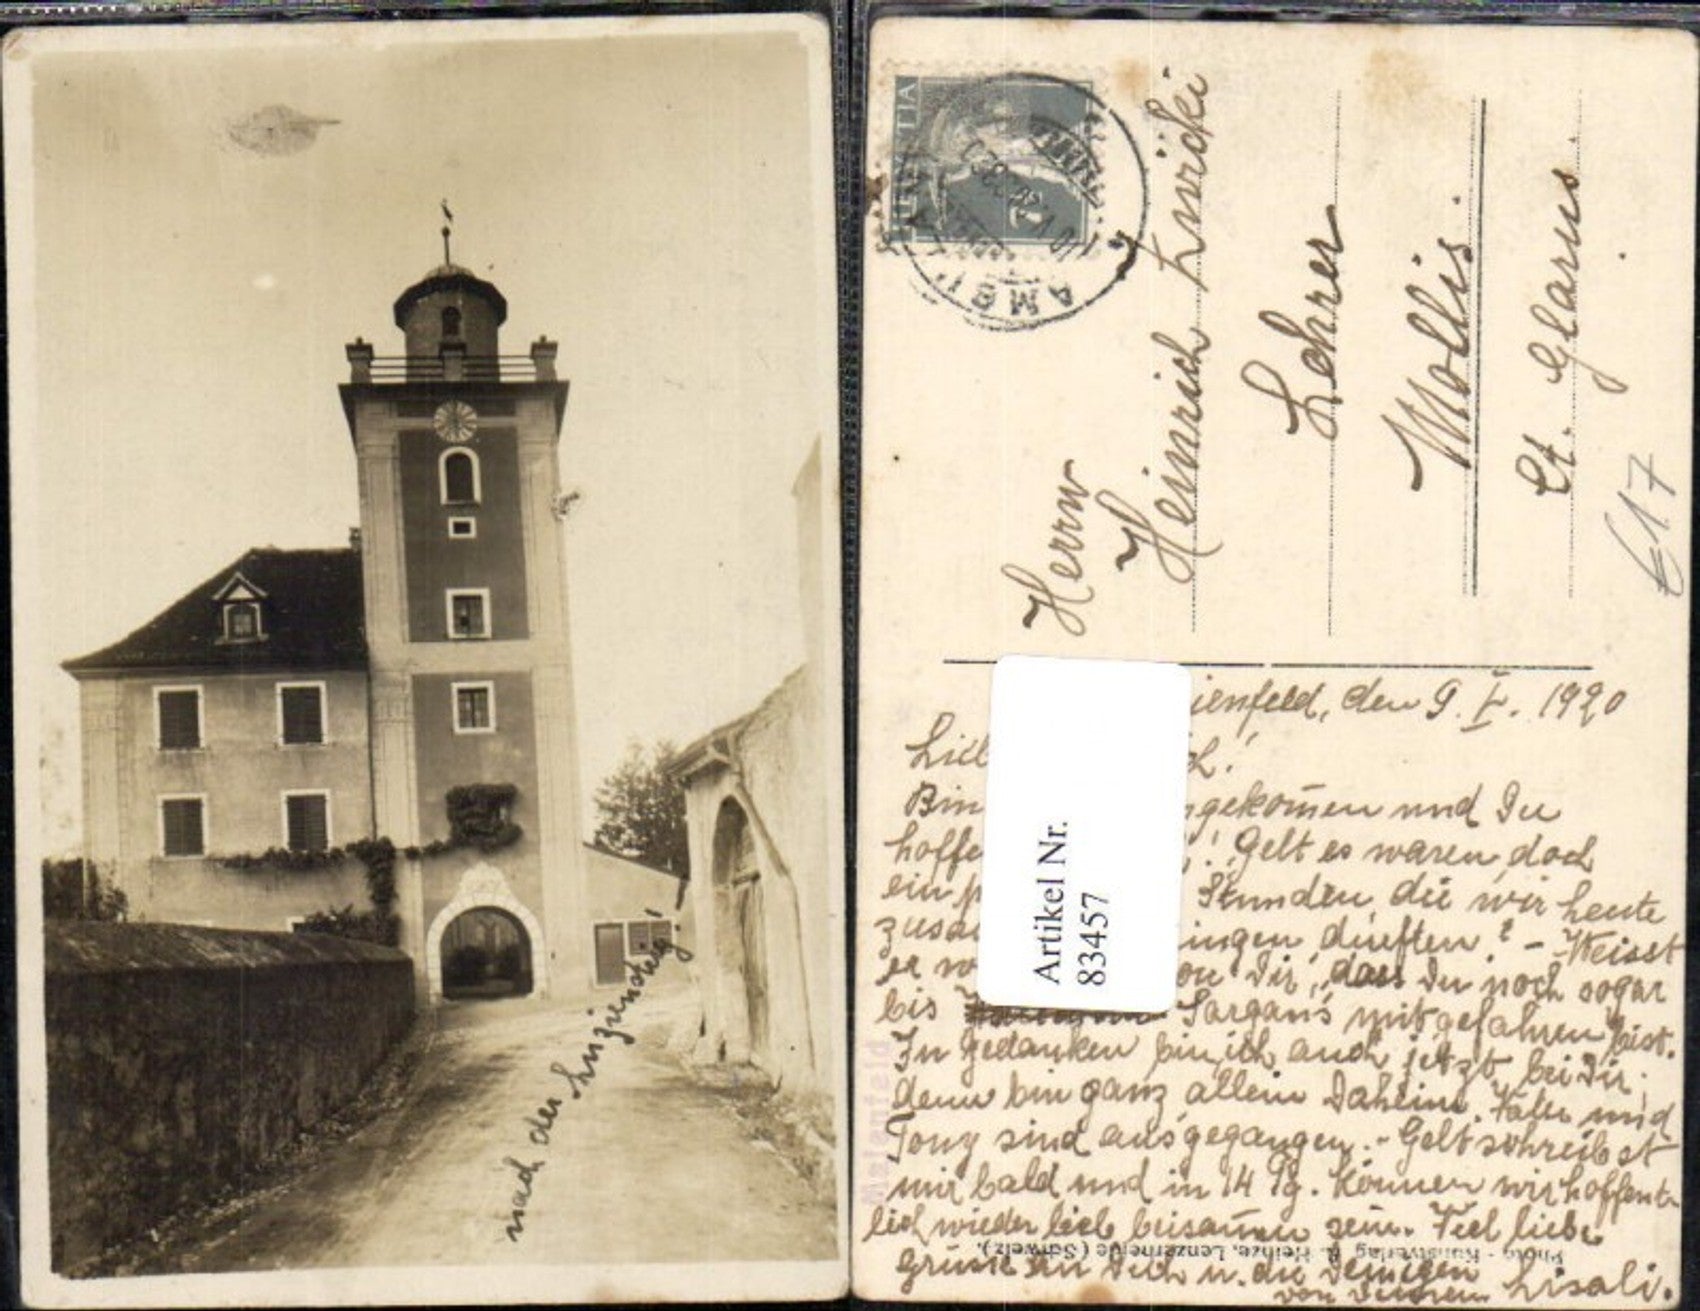 nach der Luziensteig!
HELVETIA
AMBU
Herrn
Heinrich Zwicki
Lehrer
Mollis.
Kt. Glarus.
Artikel Nr.
83457
Maienfeld
ienfeld, den 9. V. 1920
Lie ch!
Bin ngekommen und Du
hoffe ! Gelt es waren doch
ein Stunden, die wir heute
zusa ingen durften? - Weisst
on Dir, dass Du noch sogar
bis Sargans mitgefahren bist.
In Gedanken bin ich auch jetzt bei Dir;
denn bin ganz allein daheim. Vater und
Tony sind ausgegangen. - Gelt schreibst
mir bald und in 14 Tg. können wir hoffent-
lich wieder lieb beisammen sein. Viel liebe
Grüsse an Dich u. die Deinigen
von Deinem Lisali.
Photo - Kunstverlag R. Heinze, Lenzerheide (Schweiz).